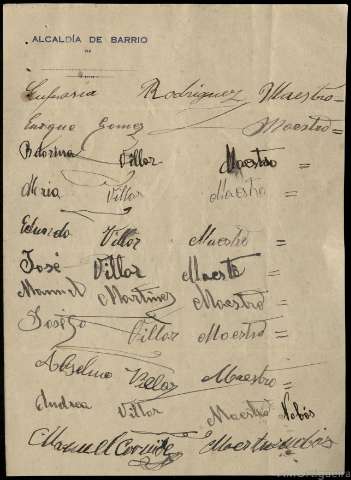 ALCALDÍA DE BARRIO
DE
Eufrasia Rodriguez Maestro
Enrique Gomez Maestro
Bitorina Villar Maestro =
Maria Villar Maestro =
Eduardo Villar Maestro =
José Villar Maestro =
Manuel Martinez Maestro =
Villar Maestro =
Abselmo Villar Maestro =
Andrea Villar Maestro Nobás
Manuel